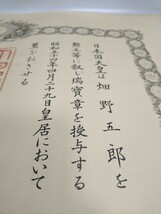 日本国天皇は畑野五郎を
勲五等に叙し瑞宝章を授与する
昭和五十四年四月二十九日皇居において
璽をおさせる